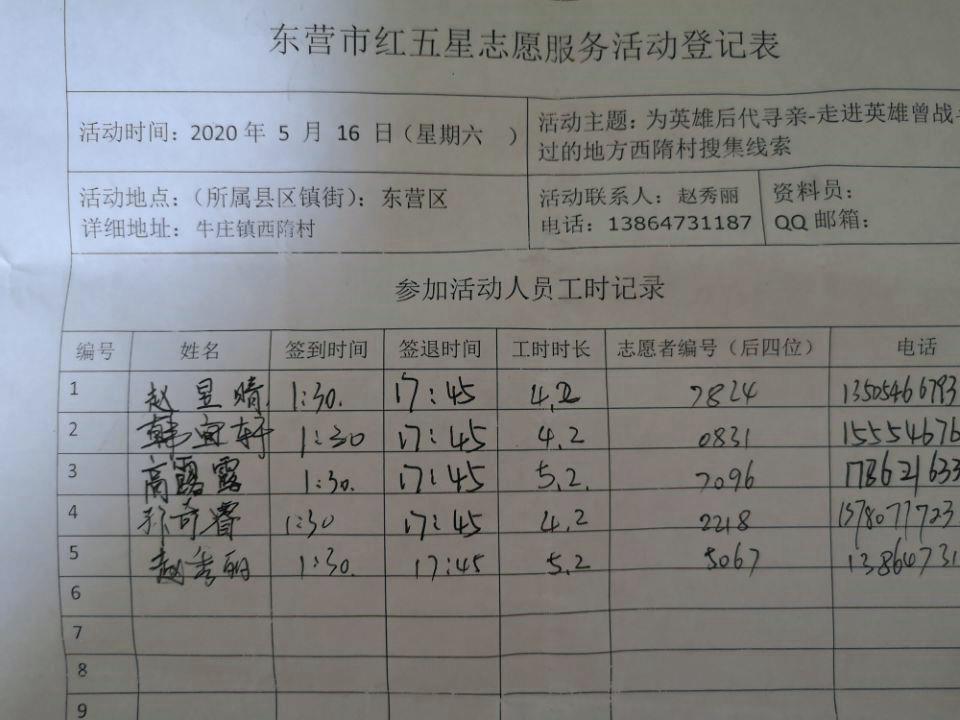 东营市红五星志愿服务活动登记表
活动时间：2020 年 5 月 16 日（星期六 ）
活动主题：为英雄后代寻亲-走进英雄曾战
过的地方西隋村搜集线索
活动地点：（所属县区镇街）：东营区
详细地址： 牛庄镇西隋村
活动联系人：赵秀丽
电话：13864731187
资料员：
QQ 邮箱：
参加活动人员工时记录
编号 姓名 签到时间 签退时间 工时时长 志愿者编号（后四位） 电话
1 赵昱晴 1:30. 17:45 4.2 7824 13505466793
2 韩宜轩 1:30 17:45 4.2 0831 15554676
3 高露露 1:30. 17:45 5.2. 7096 178621633
4 奇睿 1:30 17:45 4.2 2218 1578077723
5 赵秀丽 1:30. 17:45 5.2 5067 13864731
6
7
8
9